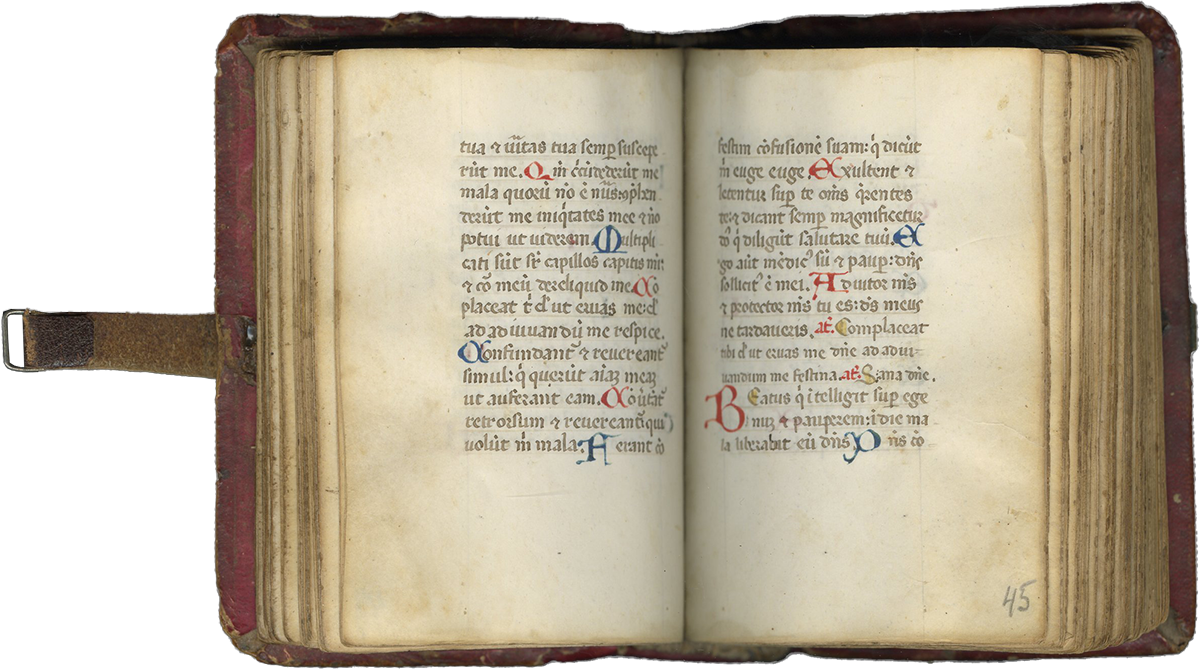 tua & ùitas tua semp suscepe
rũt me. Qm̃ c̃cũdederũt me
mala quorũ nõ ẽ nũs: ꝯp̃hen
derũt me iniq̃tates mee & nõ
potui ut uiderem. Multipli
cati sũt sr̃ capillos capitis mei:
& coꝛ meũ dereliquid me. Cõ
placeat t̃ dñe ut eruas me: dñe
ad adiuuandũ me respice.
Confundant̃ & reuereant̃
simul: q̃ querũt aĩaꝫ meaꝫ
ut auferant eam. Cõũtãt̃
retrorsum & reuereant̃ qui
uolũt m̃ mala. Ferant cõ
festim cõfusionẽ suam: q̃ dicũt
m̃ euge euge. Exultent &
letentur sup te om̃s q̃rentes
te: & dicant semp magnificetur
dñs q̃ diligũt salutare tuũ. E
go aũt mẽdicꝰ sũ & paup: dñs
sollicitꝰ ẽ mei. Adiutor mẽs
& protector mẽs tu es: dẽs meus
ne tardaueris. añ. Complaceat
tibi dñe ut eruas me dñe ad adiu-
uandum me festina. añ. Sana dñe.
Beatus q̃ ĩtelligit sup ege
nuꝫ & pauperem: ĩ die ma
la liberabit eũ dñs. Dñs cõ
45